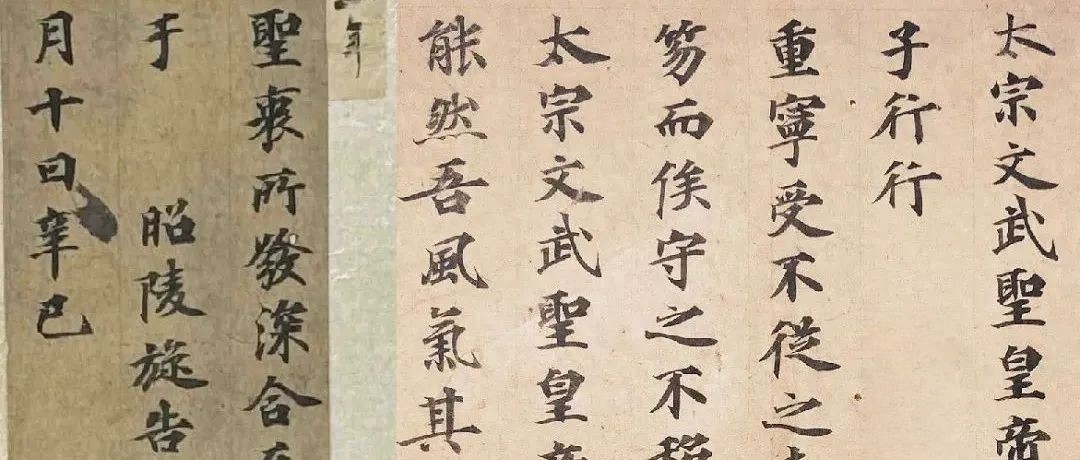 太宗文武聖皇帝
子行行
重寧受不從之
笏而俟守之不
太宗文武聖皇帝
能然吾風氣其
年
聖衷所發深合
于　昭陵旋告
月十日辛巳